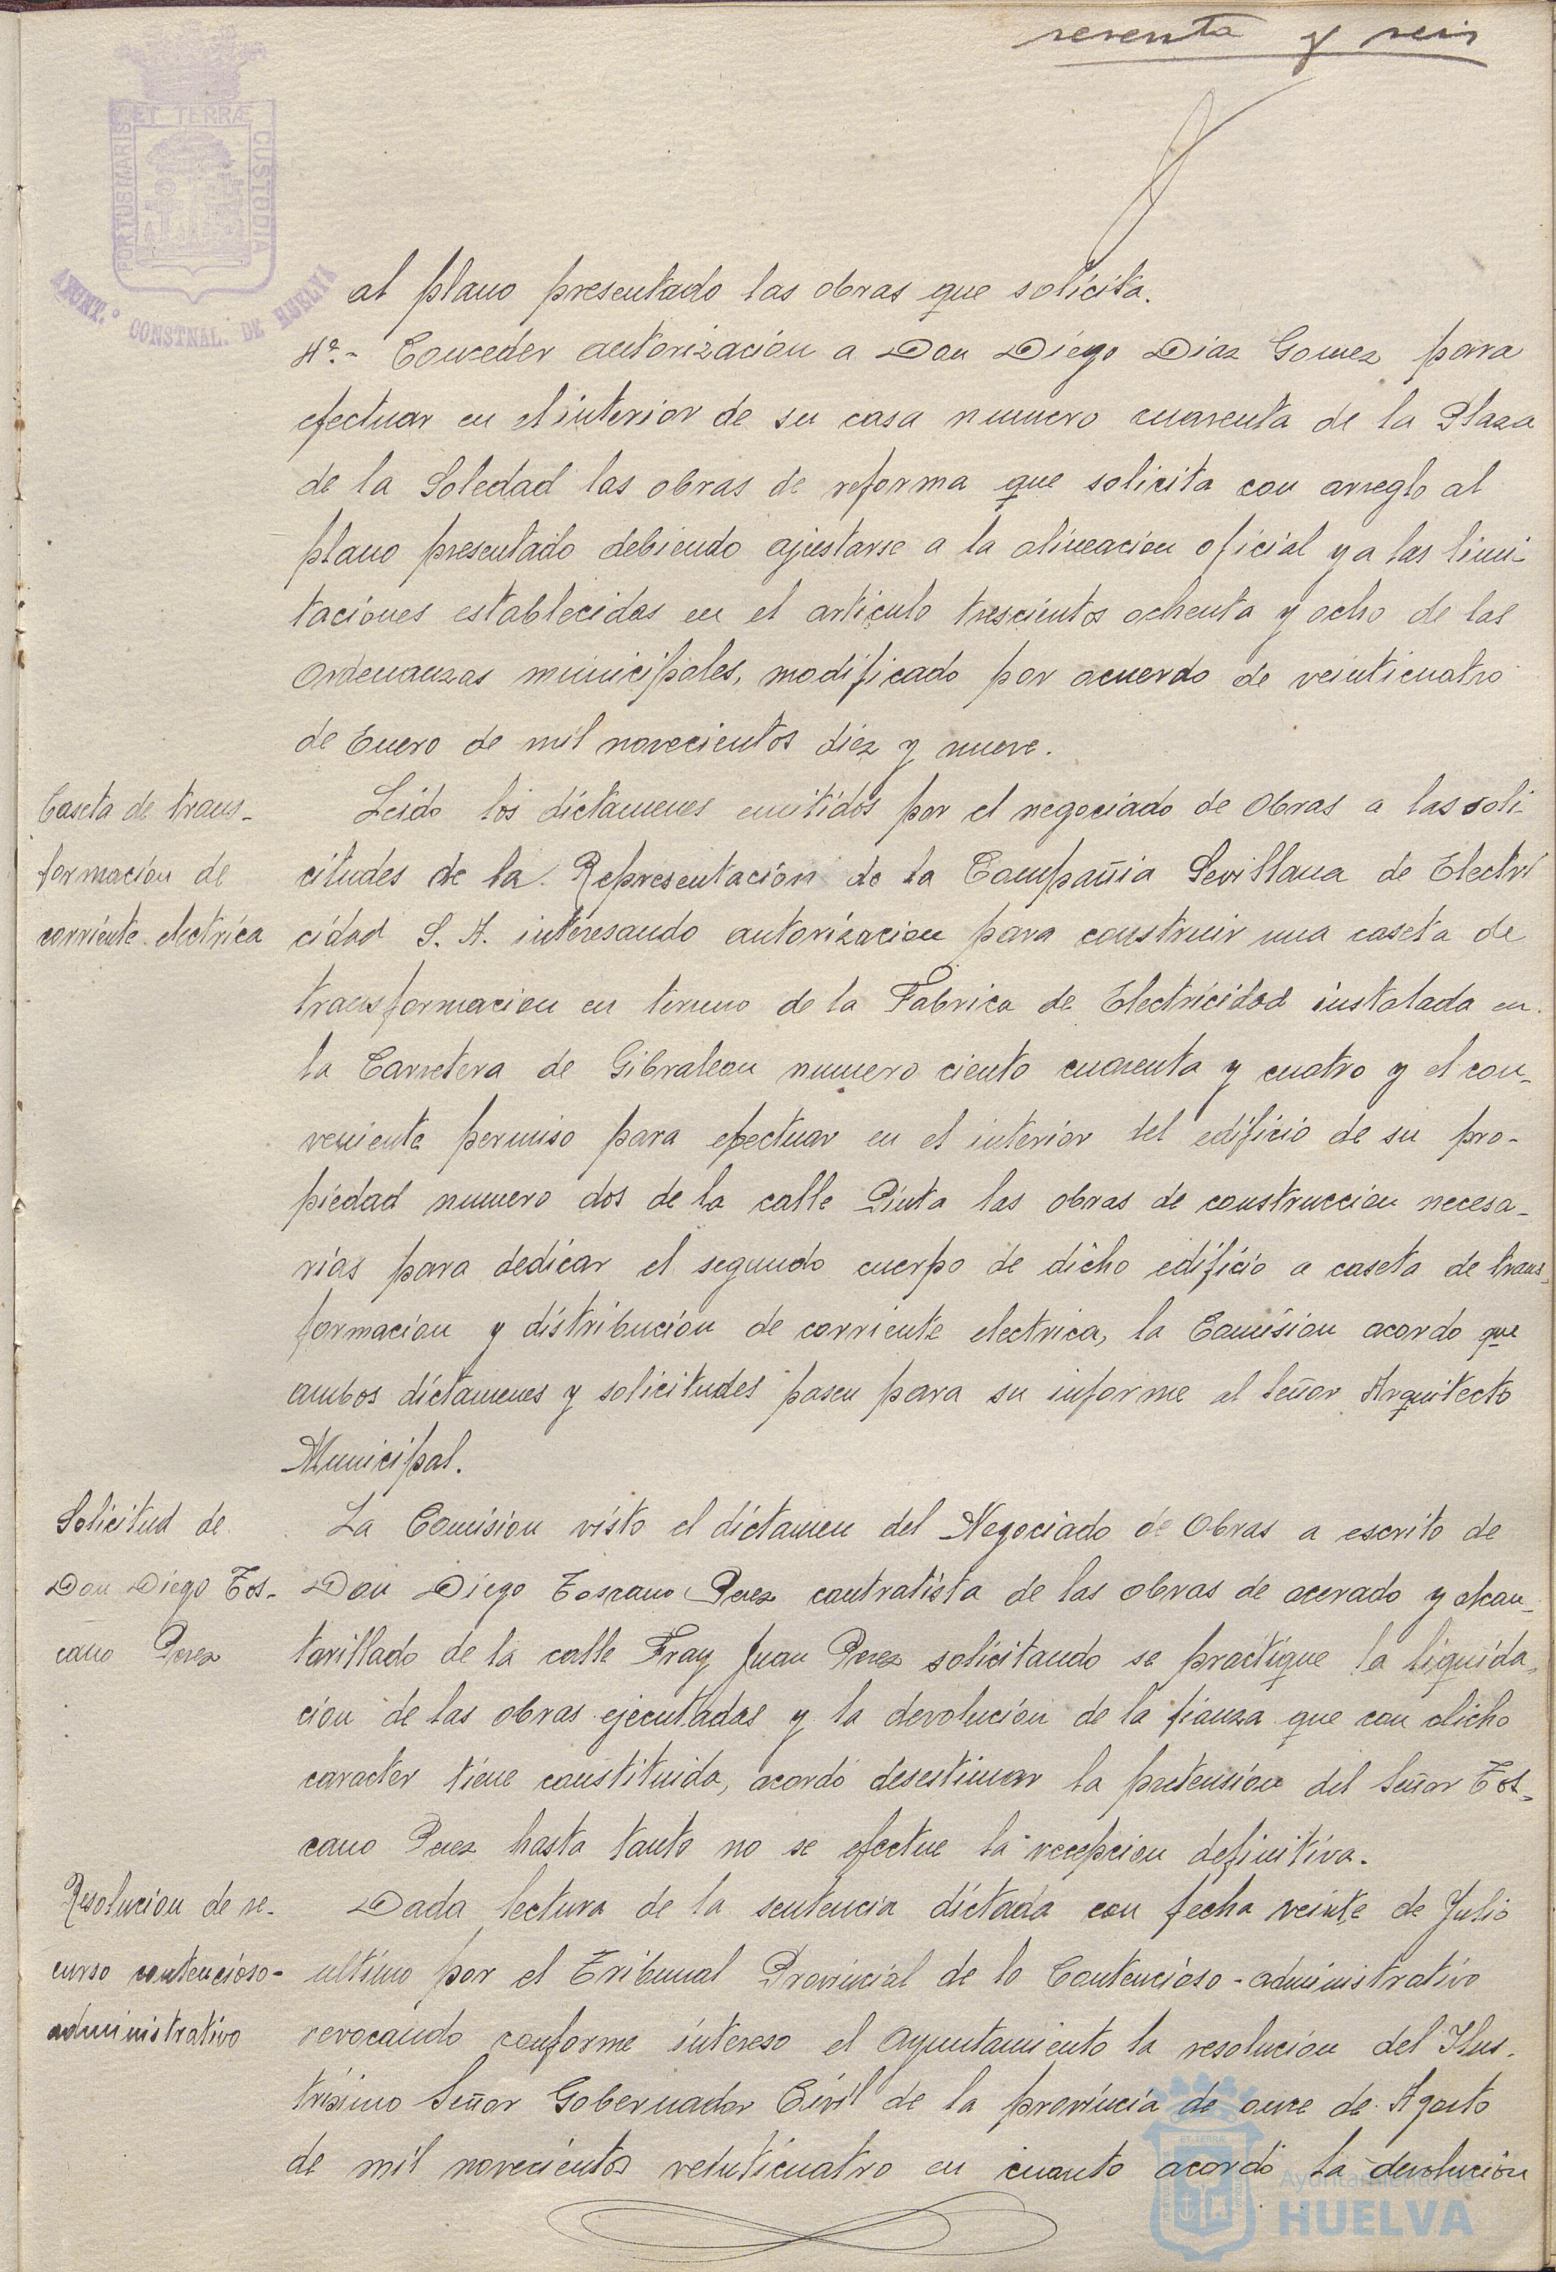 sesenta y seis
PORTUS MARIS ET TERRÆ CUSTODIA
AYUNT.º CONSTNAL. DE HUELVA
al plano presentado las obras que solicita.
4º.- Conceder autorización a Don Diego Diaz Gomez para
efectuar en el interior de su casa numero cuarenta de la Plaza
de la Soledad las obras de reforma que solicita con arreglo al
plano presentado debiendo ajustarse a la alineacion oficial y a las limi-
taciones establecidas en el articulo trescientos ochenta y ocho de las
Ordenanzas municipales, modificado por acuerdo de veinticuatro
de Enero de mil novecientos diez y nueve.
Caseta de trans-
formación de
corriente electrica
Leido los dictamenes emitidos por el negociado de Obras a las soli-
citudes de la Representación de la Compañia Sevillana de Electri
cidad S. A. interesando autorizacion para construir una caseta de
transformacion en terreno de la Fabrica de Electricidad instalada en
la Carretera de Gibraleon numero ciento cuarenta y cuatro y el con-
veniente permiso para efectuar en el interior del edificio de su pro-
piedad numero dos de la calle Pinta las obras de construccion necesa-
rias para dedicar el segundo cuerpo de dicho edificio a caseta de trans-
formacion y distribución de corriente electrica, la Comision acordo que
ambos dictamenes y solicitudes pasen para su informe al Señor Arquitecto
Municipal.
Solicitud de
Don Diego Tos-
cano Perez
La Comision visto el dictamen del Negociado de Obras a escrito de
Don Diego Toscano Perez contratista de las obras de acerado y alcan-
tarillado de la calle Fray Juan Perez solicitando se practique la liquida-
ción de las obras ejecutadas y la devolución de la fianza que con dicho
caracter tiene constituida, acordó desestimar la pretension del Señor Tos-
cano Perez hasta tanto no se efectue la recepcion definitiva.
Resolucion de re-
curso contencioso-
administrativo
Dada lectura de la sentencia dictada con fecha veinte de Julio
ultimo por el Tribunal Provincial de lo Contencioso-administrativo
revocando conforme intereso el Ayuntamiento la resolucion del Ilus-
trisimo Señor Gobernador Civil de la provincia de once de Agosto
de mil novecientos veinticuatro en cuanto acordó la devolución
Ayuntamiento de
HUELVA